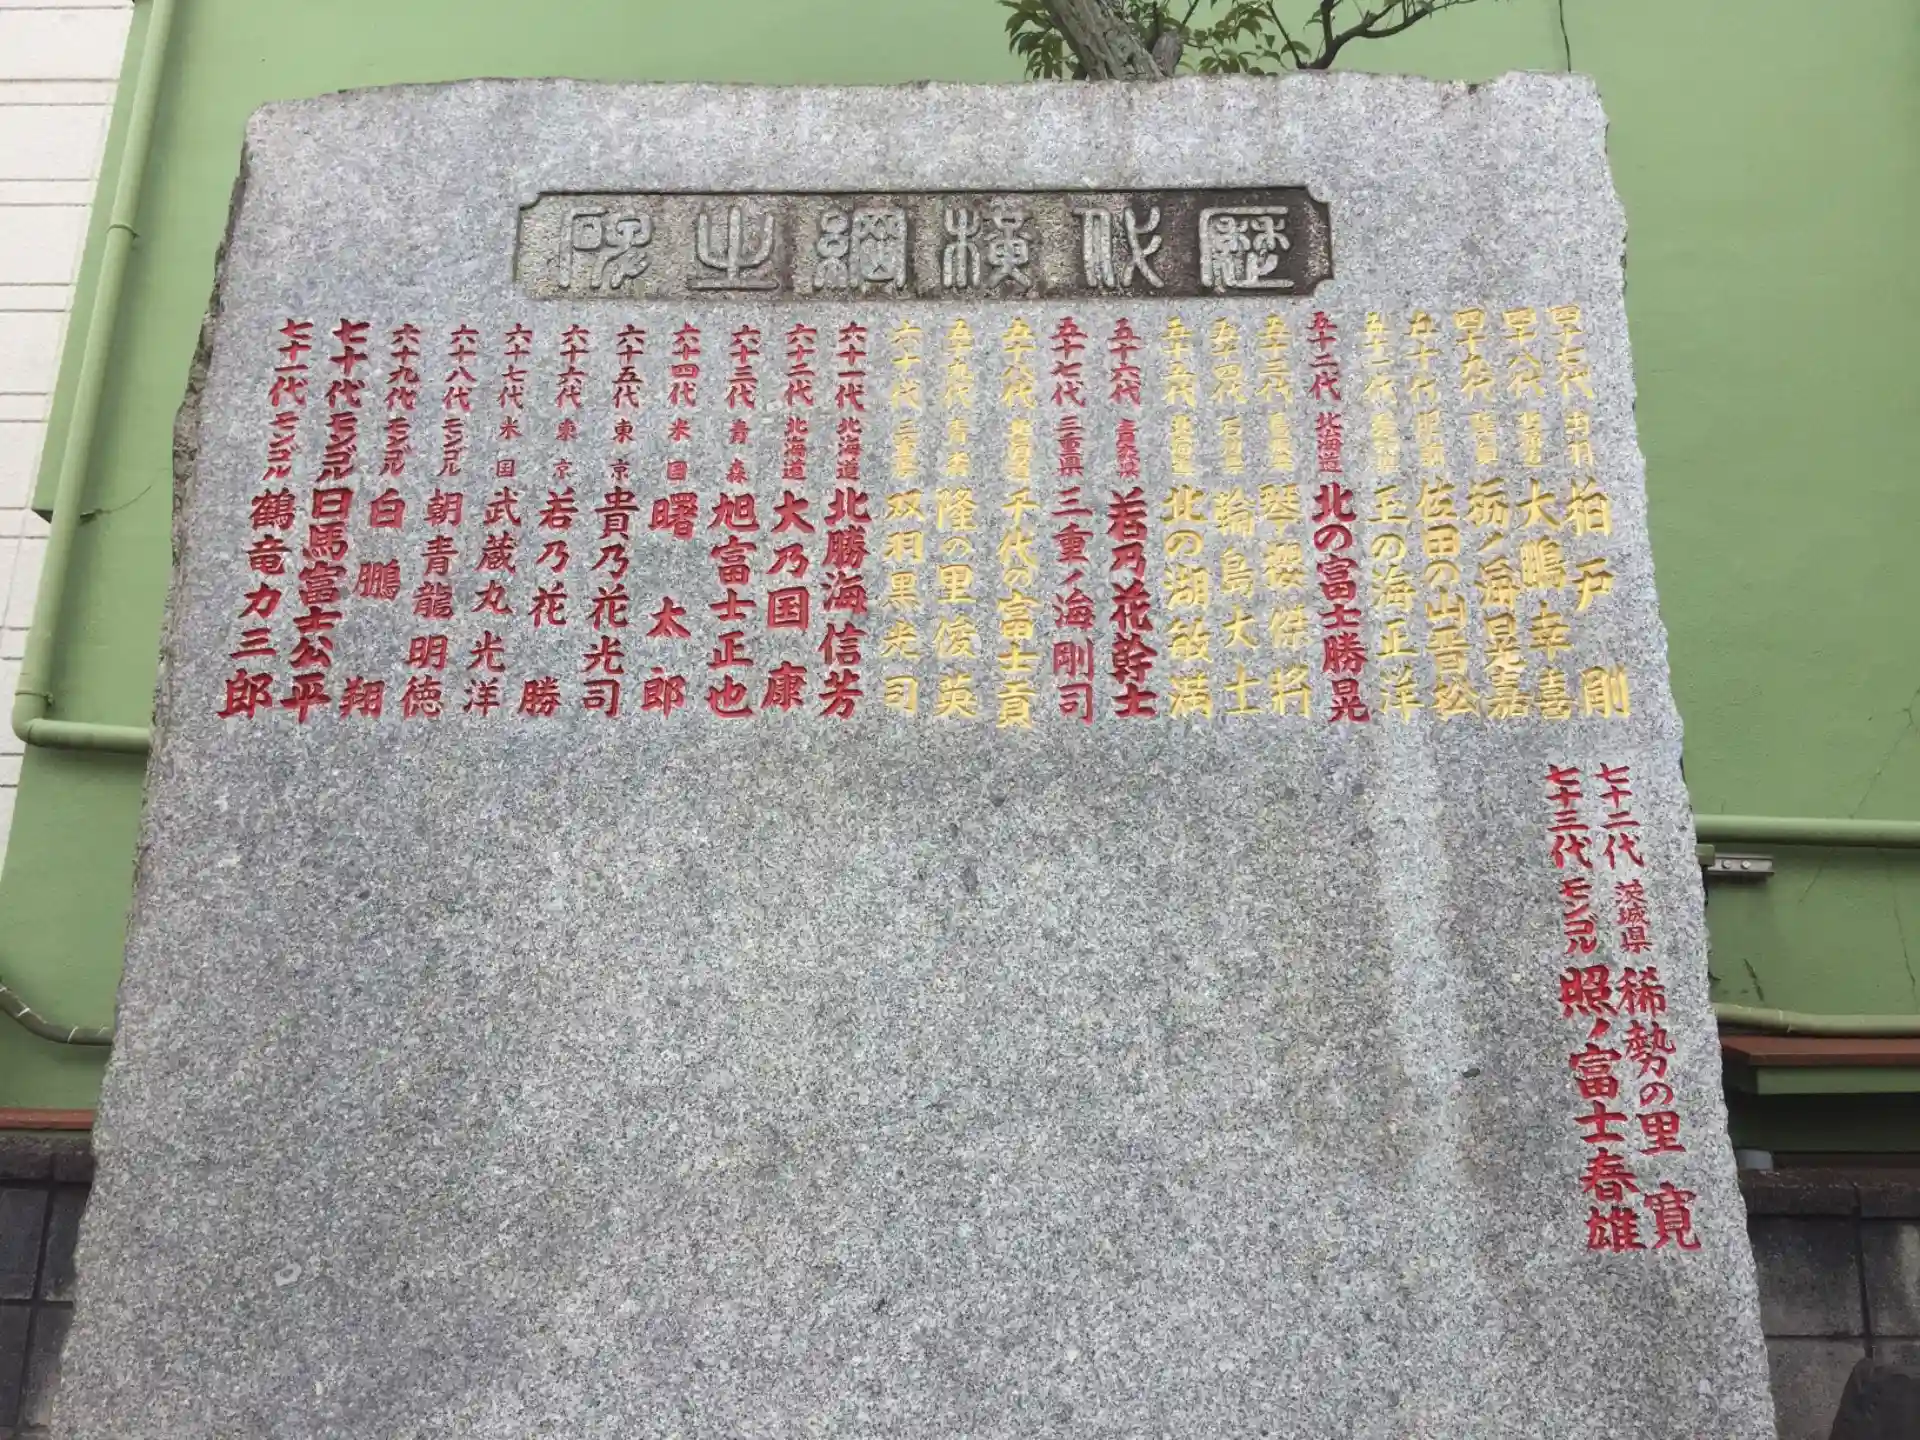 歴代横綱之碑
四十七代 山形 柏戸剛
四十八代 北海道 大鵬幸喜
四十九代 栃ノ海晃嘉
五十代 佐田の山晋松
五十一代 玉の海正洋
五十二代 北海道 北の富士勝晃
五十三代 鳥取県 琴櫻傑將
五十四代 石川県 輪島大士
五十五代 北海道 北の湖敏満
五十六代 青森県 若乃花幹士
五十七代 三重県 三重ノ海剛司
五十八代 北海道 千代の富士貢
五十九代 青森 隆の里俊英
六十代 三重県 双羽黒光司
六十一代 北海道 北勝海信芳
六十二代 北海道 大乃国康
六十三代 青森 旭富士正也
六十四代 米国 曙太郎
六十五代 東京 貴乃花光司
六十六代 東京 若乃花勝
六十七代 米国 武蔵丸光洋
六十八代 モンゴル 朝青龍明徳
六十九代 モンゴル 白鵬翔
七十代 モンゴル 日馬富士公平
七十一代 モンゴル 鶴竜力三郎
七十二代 茨城県 稀勢の里寛
七十三代 モンゴル 照ノ富士春雄